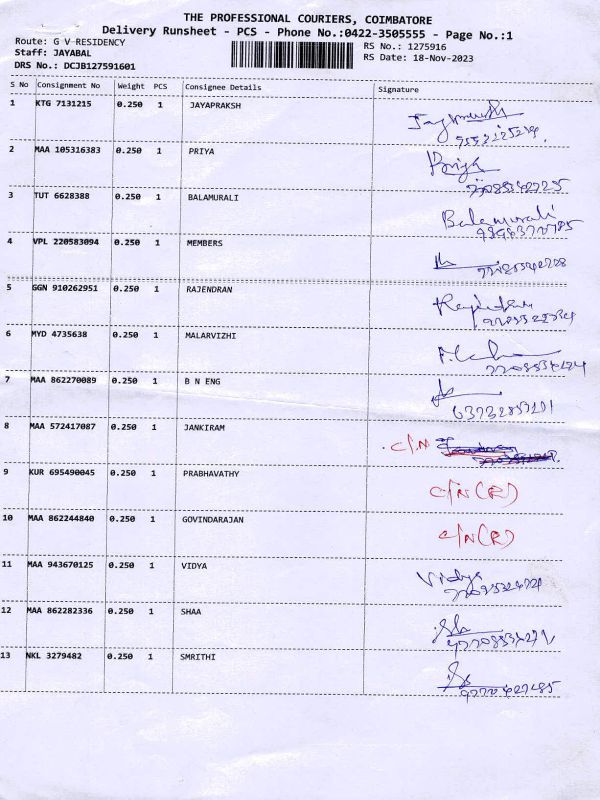 THE PROFESSIONAL COURIERS, COIMBATORE
Delivery Runsheet - PCS - Phone No.:0422-3505555 - Page No.:1
Route: G V RESIDENCY
Staff: JAYABAL
DRS No.: DCJB127591601
RS No.: 1275916
RS Date: 18-Nov-2023
S No Consignment No Weight PCS Consignee Details Signature
1 KTG 7131215 0.250 1 JAYAPRAKSH
2 MAA 105316383 0.250 1 PRIYA Priya
3 TUT 6628388 0.250 1 BALAMURALI Balamurali
4 VPL 220583094 0.250 1 MEMBERS
5 GGN 910262951 0.250 1 RAJENDRAN
6 MYD 4735638 0.250 1 MALARVIZHI
7 MAA 862270089 0.250 1 B N ENG
8 MAA 572417087 0.250 1 JANKIRAM C/N
9 KUR 695490045 0.250 1 PRABHAVATHY C/N(R)
10 MAA 862244840 0.250 1 GOVINDARAJAN C/N(R)
11 MAA 943670125 0.250 1 VIDYA Vidya
12 MAA 862282336 0.250 1 SHAA
13 NKL 3279482 0.250 1 SMRITHI